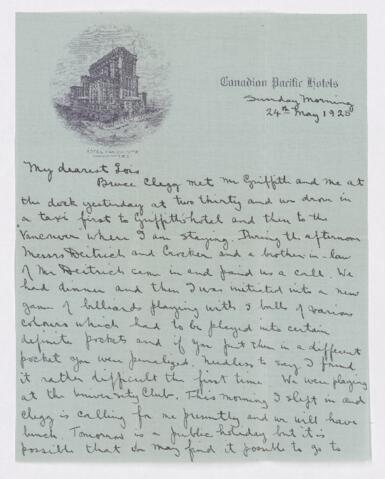 Canadian Pacific Hotels
Sunday Morning
24th May 1925
HOTEL VANCOUVER
My dearest Lois
Bruce Clegg met Mr Griffith and me at
the dock yesterday at two thirty and we drove in
a taxi first to Griffith's hotel and then to the
Vancouver where I am staying. During the afternoon
Messrs Deitrich and Crocker and a brother-in-law
of Mr Deitrich came in and paid us a call. We
had dinner and then I was initiated into a new
game of billiards playing with 5 balls of various
colours which had to be played into certain
definite pockets and if you put them in a different
pocket you were penalized. Needless to say I found
it rather difficult the first time. We were playing
at the University Club. This morning I slept in and
Clegg is calling for me presently and we will have
lunch. Tomorrow is a public holiday but it is
possible that we may find it possible to go to